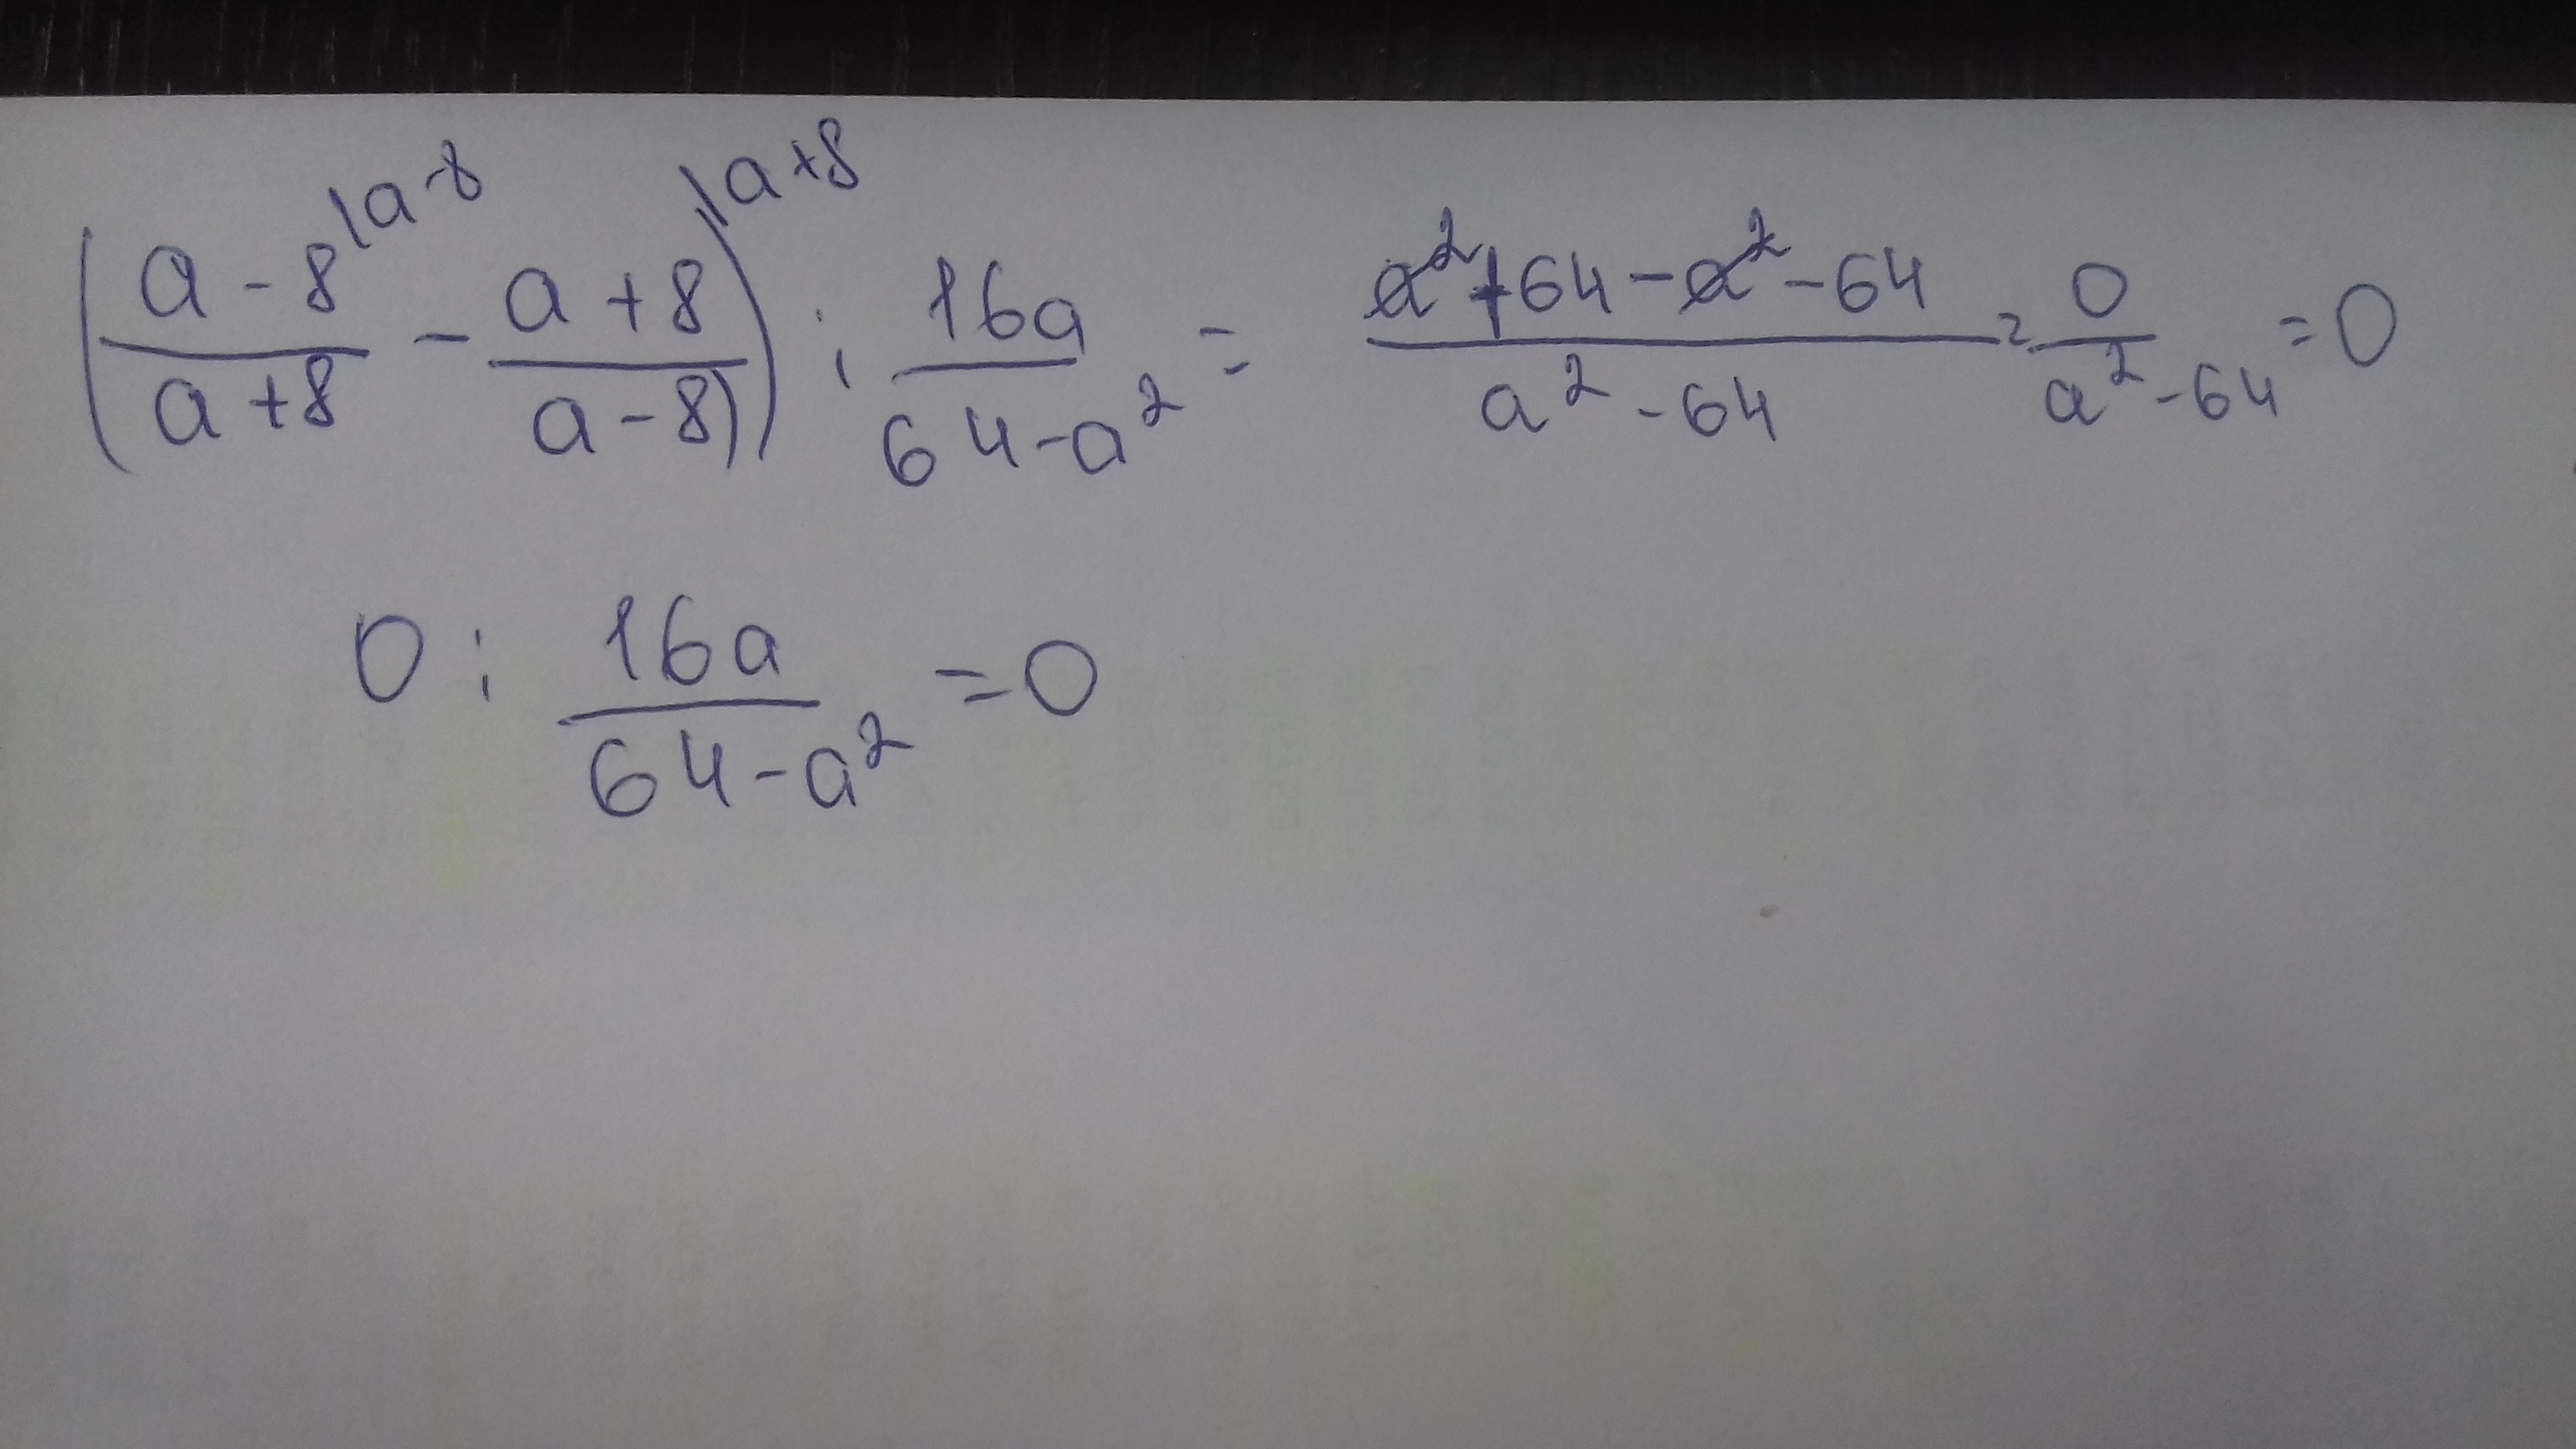 (a-8/a+8 \a-8 - a+8/a-8) \a+8 : 16a/64-a² = a²+64-a²-64/a²-64 = 0/a²-64 = 0
0 : 16a/64-a² = 0